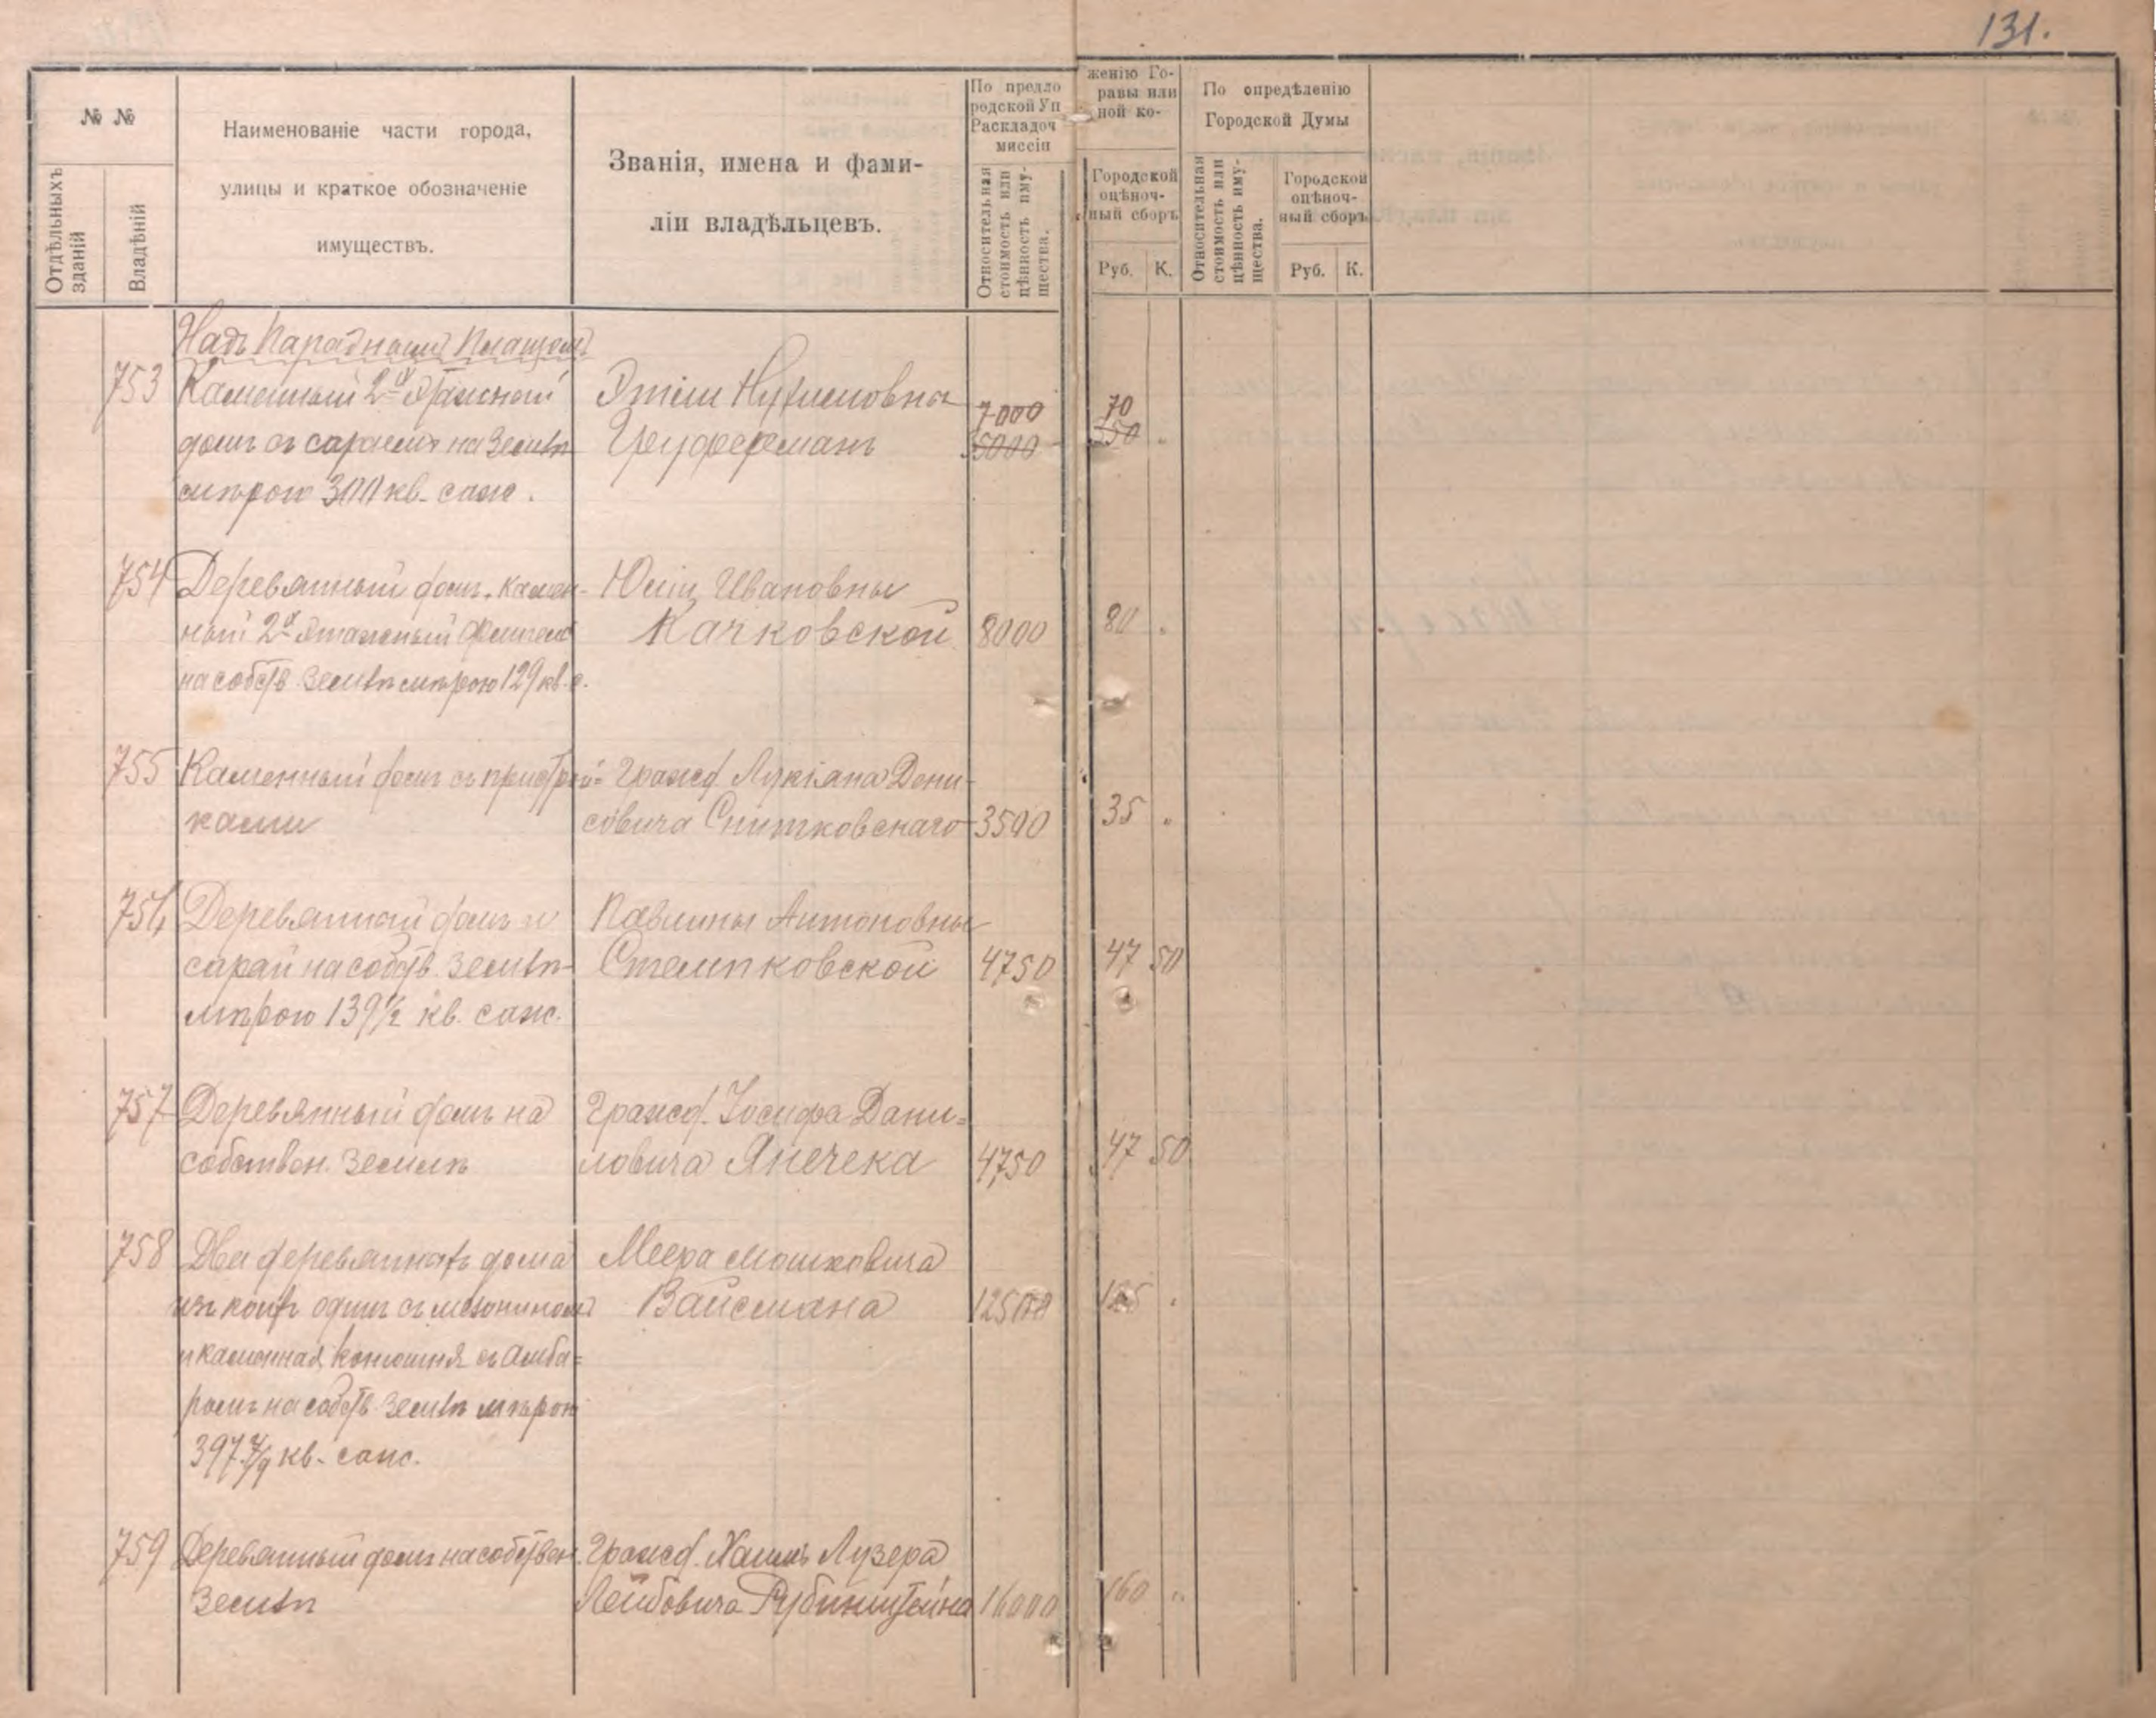 131.
№ №
Отдѣльныхъ зданій
Владѣній
Наименованіе части города,
улицы и краткое обозначеніе
имуществъ.
Званія, имена и фами-
ліи владѣльцевъ.
По предло
родской Уп
Раскладоч
миссіи
женію Го-
равы или
ной ко-
Относительная
стоимость или
цѣнность иму-
щества.
Городской
оцѣноч-
ный сборъ
Руб. К.
По опредѣленію
Городской Думы
Относительная
стоимость или
цѣнность иму-
щества.
Городской
оцѣноч-
ный сборъ
Руб. К.
Надъ Параднымъ Плацомъ
753 Каменный 2хъ Этажный
домъ съ сараемъ на землѣ
мѣрою 300 кв. саж.
7000 70
5000 50 "
754 Деревянный домъ, камен-
ный 2х этажный флигель
на собств землѣ мѣрою 129 кв. с.
Юліи Ивановны
Качковской 8000 80 "
755 Каменный домъ съ пристрой=
ками
Гражд. Лукіана Дени-
совича Снитковскаго 3500 35 "
756 Деревянный домъ и
сарай на собств. землѣ-
мѣрою 139 1/2 кв. саж.
Павлины Антоновны
Стемпковской 4750 47 50
757 Деревянный домъ на
собствен. землѣ
Гражд. Іосифа Дани=
ловича Янечека 4750 47 50
758 Два деревянныхъ дома
изъ коихъ одинъ съ мезониномъ
и каменная конюшня съ амба=
ромъ на собств землѣ мѣрою
397 7/9 кв. саж.
Меера Мошковича
Вайсмана 12500 125 "
759 Деревянный домъ на собствен.
землѣ
Гражд. Хаимъ Лузера
Лейбовича Рубинштейна 16000 160 "